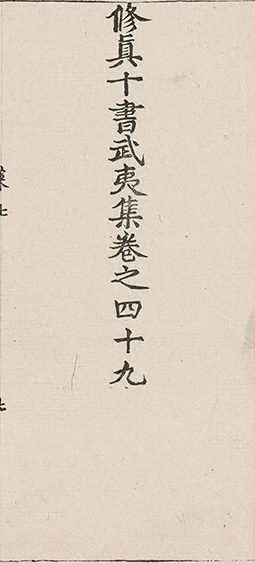 修真十書武夷集卷之四十九
七
七